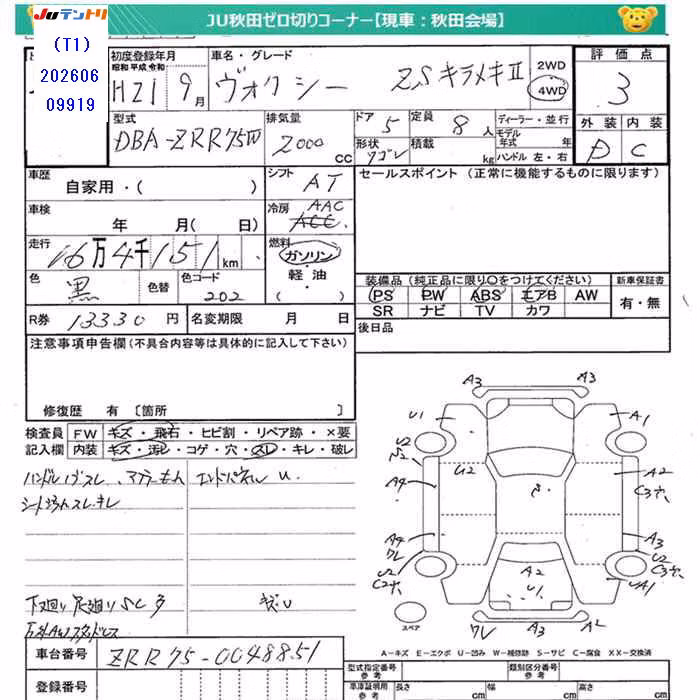 JUテントリ JU秋田ゼロ切りコーナー【現車：秋田会場】
(T1)
202606
09919
初度登録年月
昭和 平成 令和
H21 9月
車名・グレード
ヴォクシー ZSキラメキII
2WD
4WD
評価点
3
外装 内装
D C
型式
DBA-ZRR75W
排気量
2000 CC
ドア 5
形状
ワゴン
定員 8人
積載 kg
ディーラー・並行
モデル年式 年
ハンドル 左・右
車歴
自家用・( )
シフト AT
セールスポイント (正常に機能するものに限ります)
車検
年 月( 日)
冷房 AAC
走行
16万4千151km
燃料
ガソリン
軽油
( )
色 黒 色替
色コード 202
装備品 (純正品に限り○をつけてください)
PS PW ABS エアB AW
SR ナビ TV カワ
新車保証書
有・無
R券 13330円
名変期限 月 日
後日品
注意事項申告欄(不具合内容等は具体的に記入して下さい)
修復歴 有 〔箇所 〕
検査員記入欄
FW キズ・飛石・ヒビ割・リペア跡・×要
内装 キズ・汚レ・コゲ・穴・スレ・キレ・破レ
エンドパネル U
下廻り足廻りSC多 キズU
A3 A3
U1 A1
U2 U2
U2 A2
A4 C3穴
A4 A3
ワレ U2
U2 C3穴
C2穴 UA1
A2
U1
スペア
ワレ A3 A2
A－キズ E－エクボ U－凹み W－補修跡 S－サビ C－腐食 XX－交換済
車台番号 ZRR75-0048851
登録番号
型式指定番号
参考
類別区分番号
参考
車庫証明用
参考
長さ cm 幅 cm 高さ cm